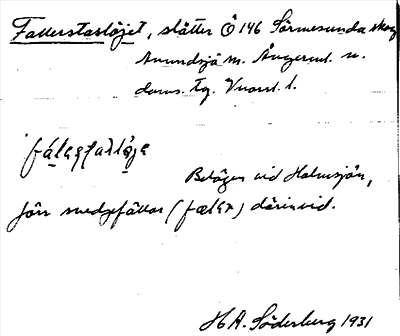 Fallerstaslöjet, slåtter Ö 146 Sörmesunda skog
Anundsjö sn. Ångerml. n.
doms. tg. Vnorrl. l.
fálaʂtaslø̀ja
Belägen vid Holmsjön,
förr svedgefällor (fælar) därinvid.
H A. Söderberg 1931